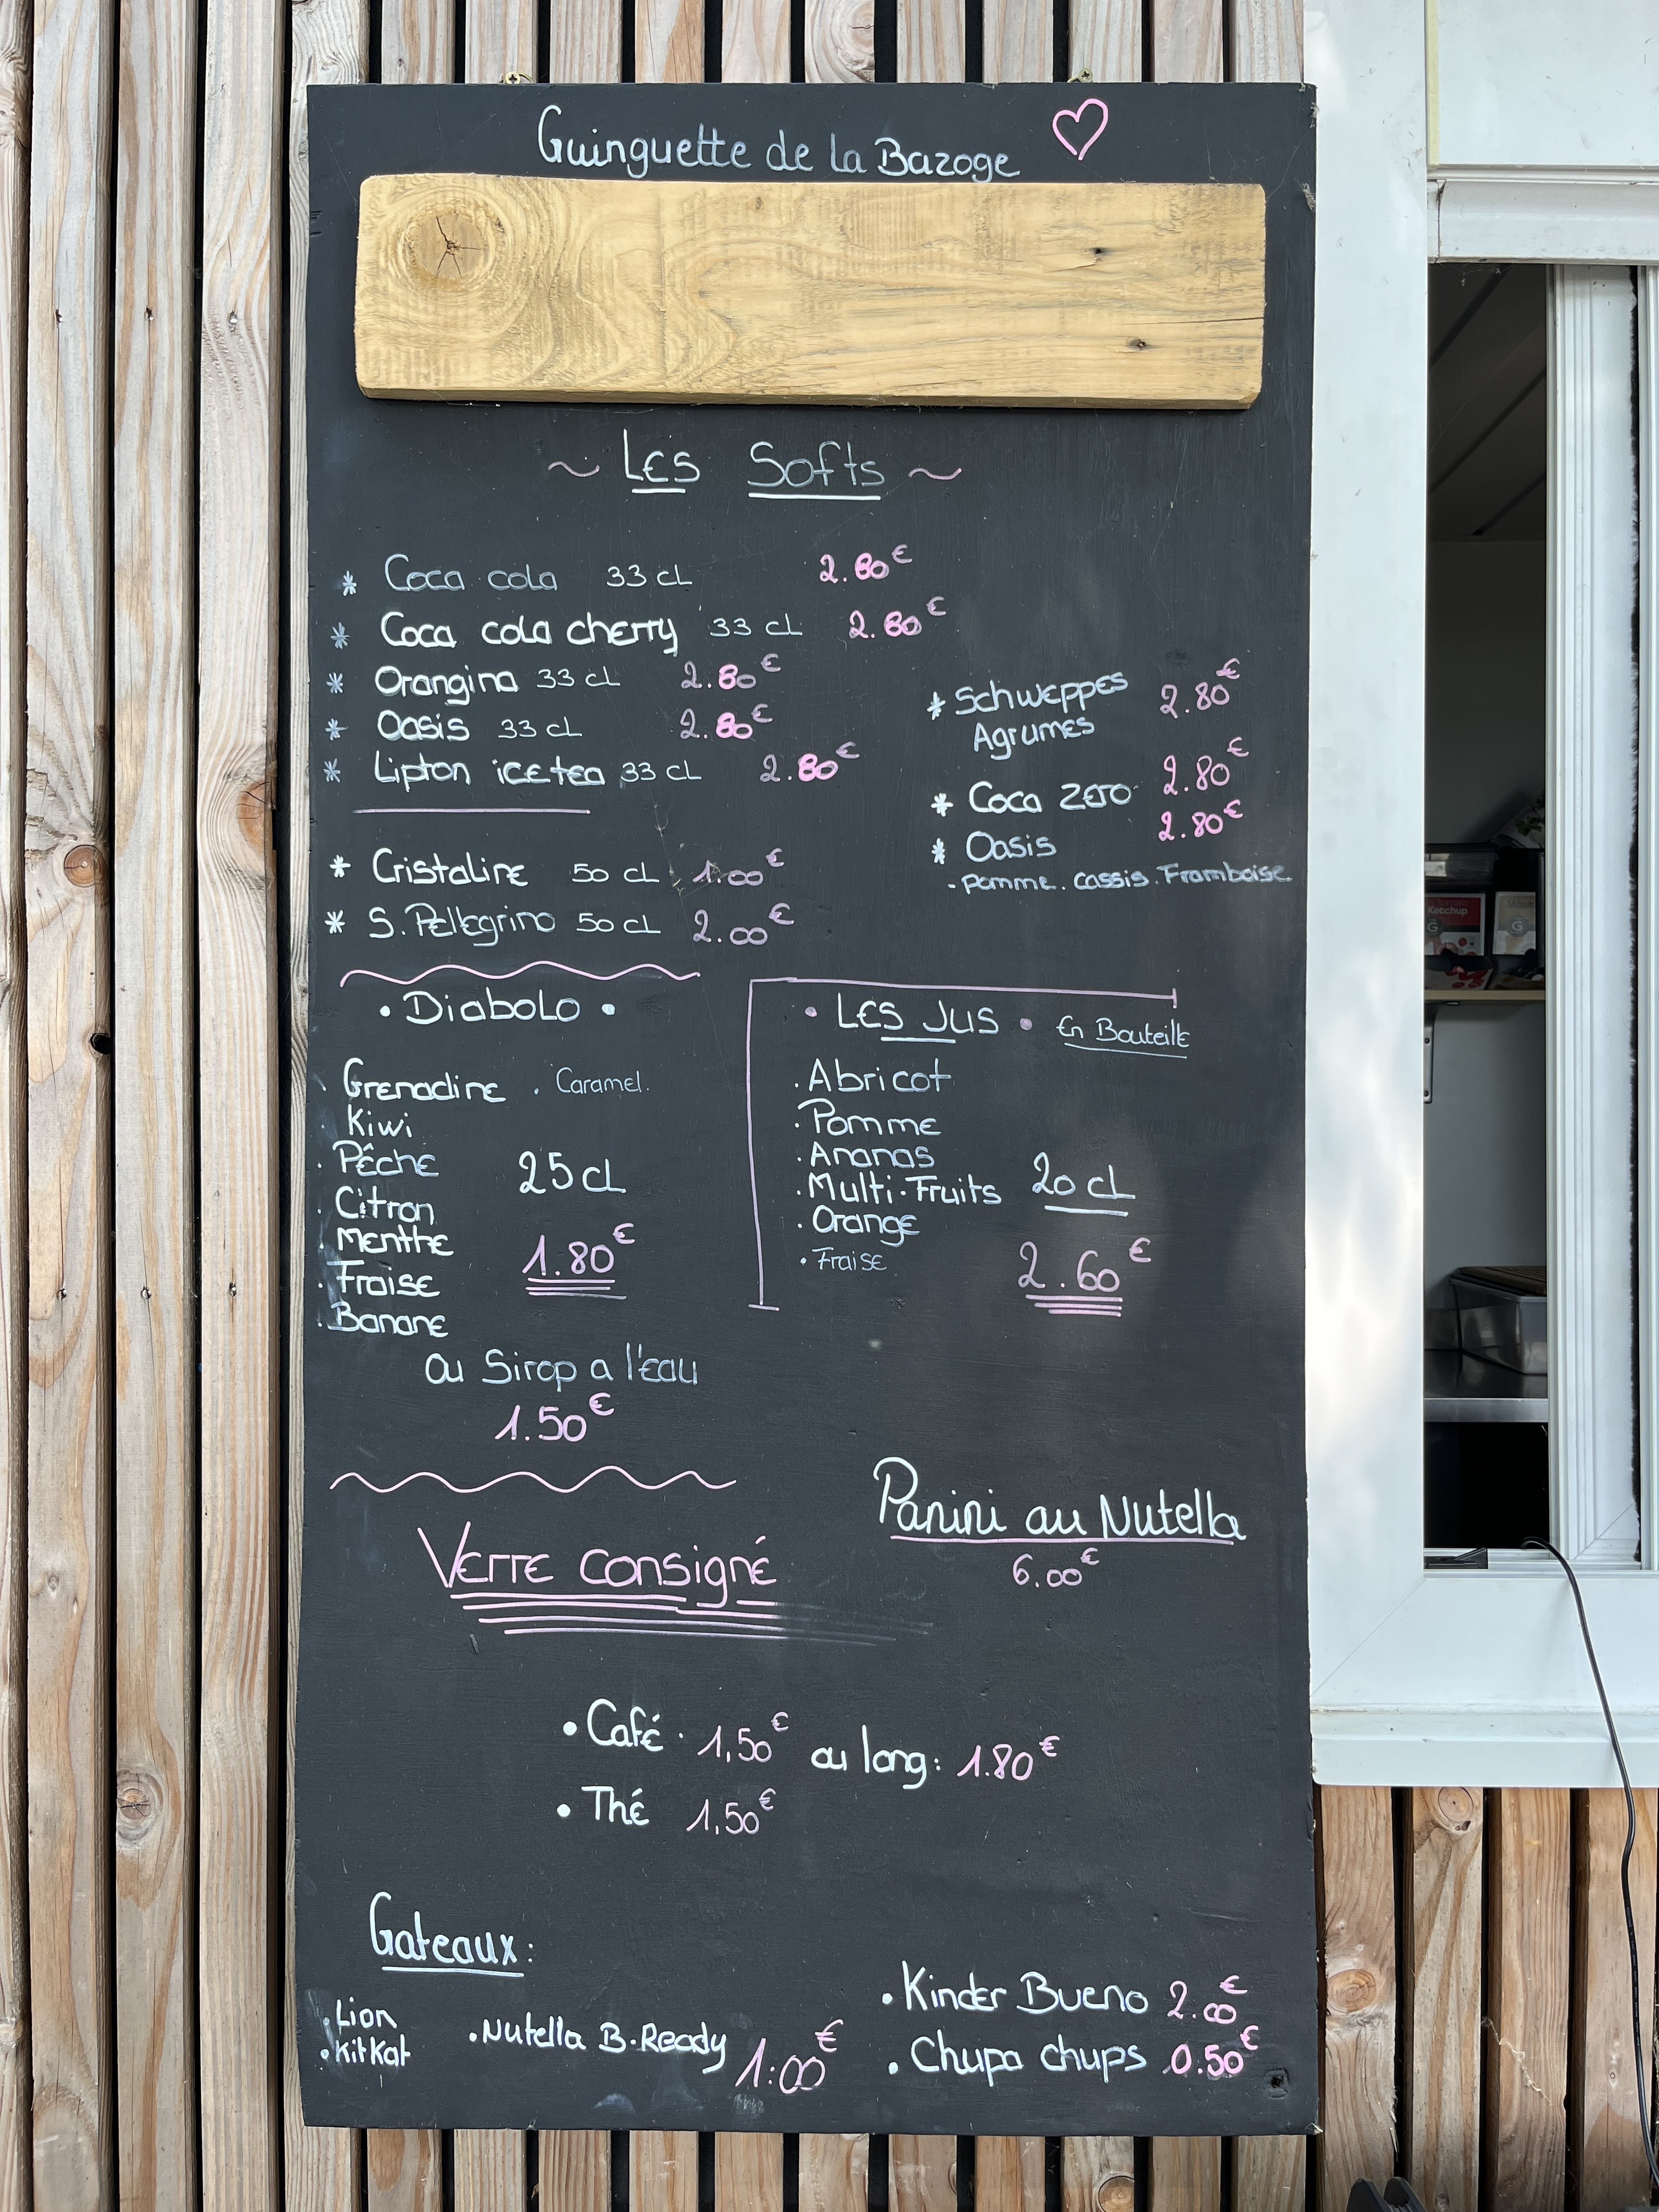 Guinguette de la Bazoge
~ Les Softs ~
* Coca cola 33 cL 2.80€
* Coca cola cherry 33 cL 2.80€
* Orangina 33 cL 2.80€
* Oasis 33 cL 2.80€
* Lipton ice tea 33 cL 2.80€
* Schweppes 2.80€
Agrumes
* Coca zero 2.80€
* Oasis 2.80€
- Pomme. cassis. Framboise
* Cristaline 50 cL 1.00€
* S. Pellegrino 50 cL 2.00€
• Diabolo •
. Grenadine . Caramel.
. Kiwi
. Pêche
. Citron
. Menthe
. Fraise
. Banane
25 cL
1.80€
Ou Sirop a l'eau
1.50€
• Les Jus • En Bouteille
. Abricot
. Pomme
. Ananas
. Multi-Fruits
. Orange
• Fraise
20 cL
2.60€
Panini au Nutella
6.00€
Verre consigné
• Café . 1,50€ ou long : 1.80€
• Thé 1,50€
Gateaux :
. Lion
• KitKat
• Nutella B-Ready 1.00€
• Kinder Bueno 2.00€
• Chupa chups 0.50€
Ketchup
G
G